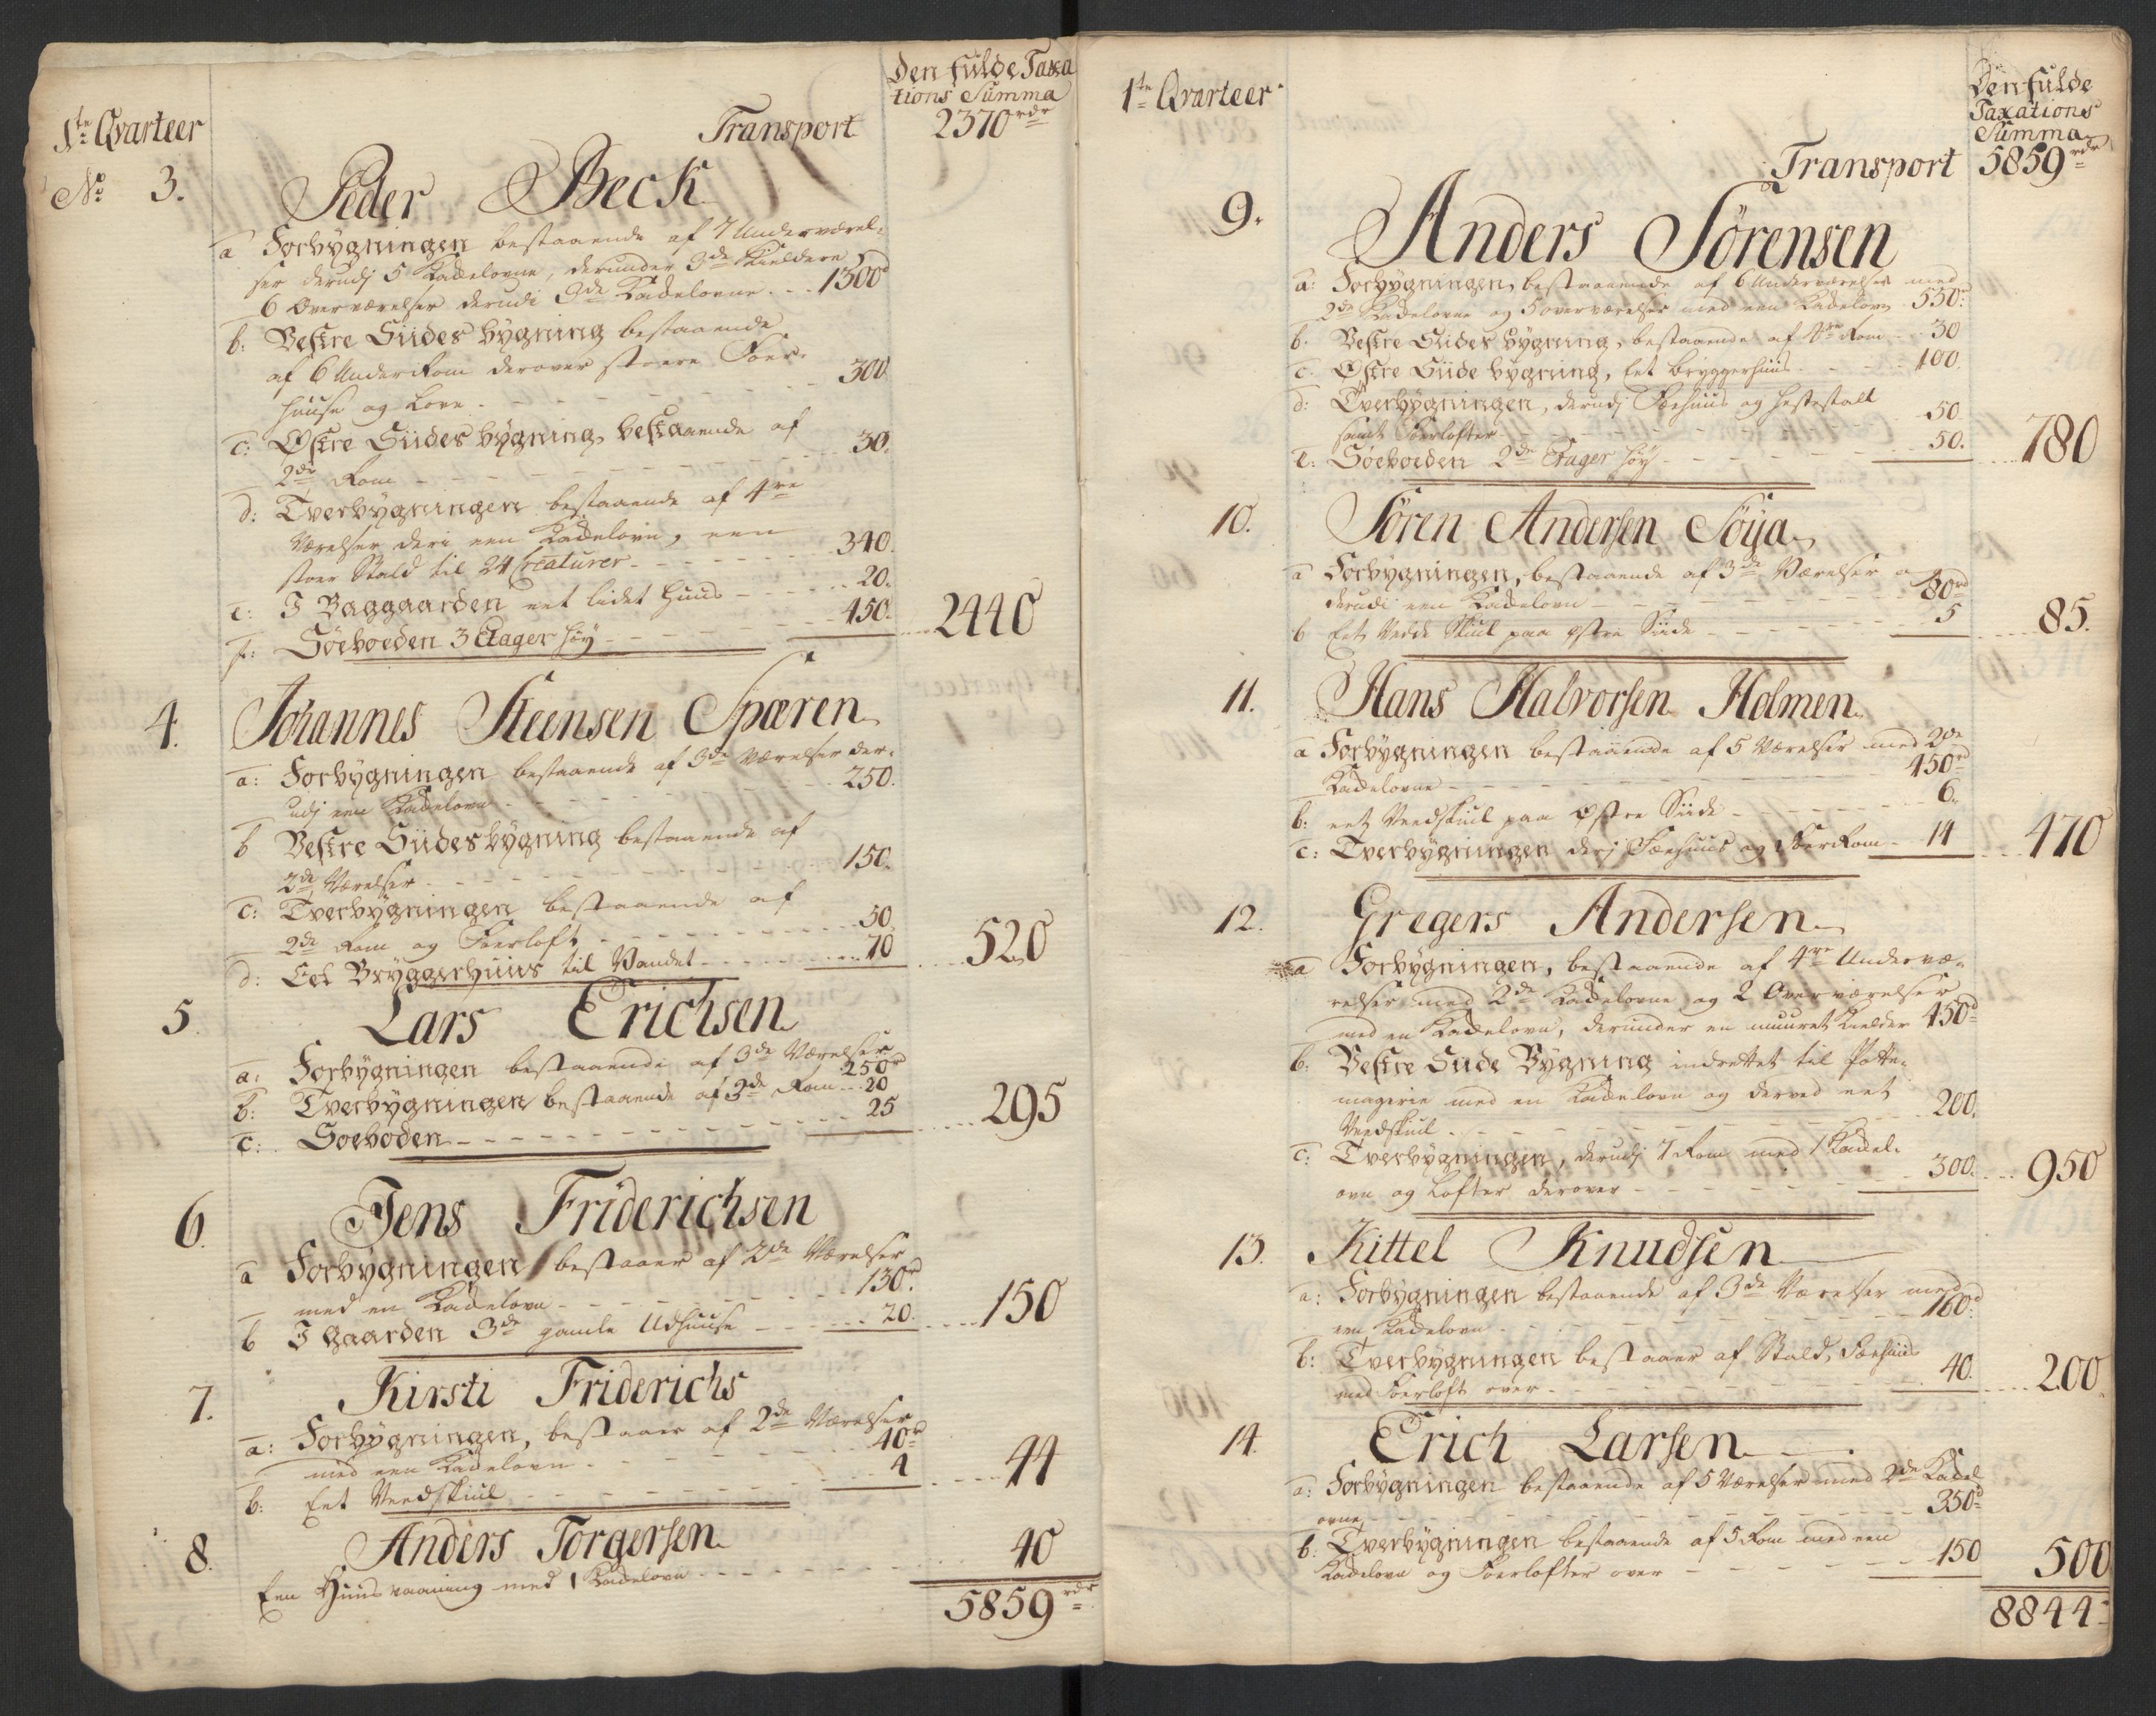 1te Qvarteer
Den fulde Taxa
tions Summa
Transport 2370 rdr
No 3. Peder Beck
a Forbygningen bestaaende af 7 Underværel-
ser derudj 5 Kadelovne, derunder 3de Kieldere
6 Overværelser derudi 3de Kadelovne - - - 1300d
b: Vestre Siides bygning bestaaende
af 6 Under Rom derover stoere Foer-
huuse og Love - - - 300
c: Østre Siides bygning, bestaaende af
2de Rom - - - 30.
d: Tverbygningen bestaaende af 4re
Værelser deri een Kadelovn, een
stoer Stald til 24 Creaturer - - - 340.
e: I Baggaarden eet lidet Huus - - - 20.
f: Søeboeden 3 Etager høy - - - 450. 2440
4. Johannes Steensen Spæren
a: Forbygningen bestaaende af 3de Værelser der-
udj een Kadelovn - - - 250.
b Vestre Siides bygning bestaaende af
2de Værelser - - - 150.
c: Tverbygningen bestaaende af
2de Rom og Foerloft - - - 50
d: Eet Bryggerhuus til Vandet - - - 70 520
5. Lars Erichsen
a: Forbygningen bestaaende af 3de Værelser 250d
b: Tverbygningen bestaaende af 3de Rom - - 20
c: Soeboden - - - 25 295
6. Jens Friderichsen
a Forbygningen bestaaer af 2de Værelser
med en Kadelovn - - - 130d
b I Gaarden 3de gamle Udhuuse - - - 20. 150
7. Kirsti Friderichs
a: Forbygningen, bestaaer af 2de Værelser
med een Kadelovn - - - 40d
b: Eet Veedskiul - - - 4 44
8. Anders Torgersen
Een Huusvaaning med 1 Kadelovn - - - 40
5859 rdr
1te Qvarteer
Den fulde
Taxations
Summa
Transport 5859 rdr
9. Anders Sørensen
a: Forbygningen, bestaaende af 6 Underværelser med
2de Kadelovne og 5 overværelser med een Kadelovn 550d
b. Vestre Siides bygning, bestaaende af 4re Rom - - 30
c. Østre Siide bygning, Eet bryggerhuus - - - 100.
d: Tverbygningen, derudj Fæehuus og hestestald
samt Foerlofter - - - 50
e: Søeboeden 2de Etager høy - - - 50. 780
10. Søren Andersen Søya
a Forbygningen, bestaaende af 3de Værelser
derudi een Kadelovn - - - 80rd
b Eet Vedde Skiul paa østre Siide - - - 5 85.
11. Hans Halvorsen Holmen
a Forbygningen bestaaende af 5 Værelser med 2de
Kadelovne - - - 450rd
b: eet Veedskiul paa Østre Siide - - - 6.
c: Tverbygningen derj Fæehuus og FoerRom - 14 470
12. Gregers Andersen
a Forbygningen, bestaaende af 4re Undervæ-
relser med 2de Kadelovne og 2 Overværelser
med en Kadelovn, derunder en muuret Kielder 450d
b: Vestre Siide Bygning indrettet til Potte-
magerie med en Kadelovn og derved eet
Veedskiul - - - 200.
c: Tverbygningen, derudj 7 Rom med 1 Kadel-
ovn og Lofter derover - - - 300. 950
13. Kittel Knudsen
a: Forbygningen bestaaende af 3de Værelser med
een Kadelovn - - - 160d
b: Tverbygningen bestaaer af Stald, Fæehuus
med Foerloft over - - - 40. 200.
14. Erich Larsen
a: Forbygningen bestaaende af 5 Værelser med 2de Kadel
ovne - - - 350d
b: Tverbygningen bestaaende af 5 Rom med een
Kadelovn og Foerlofter over - - - 150 500
8844